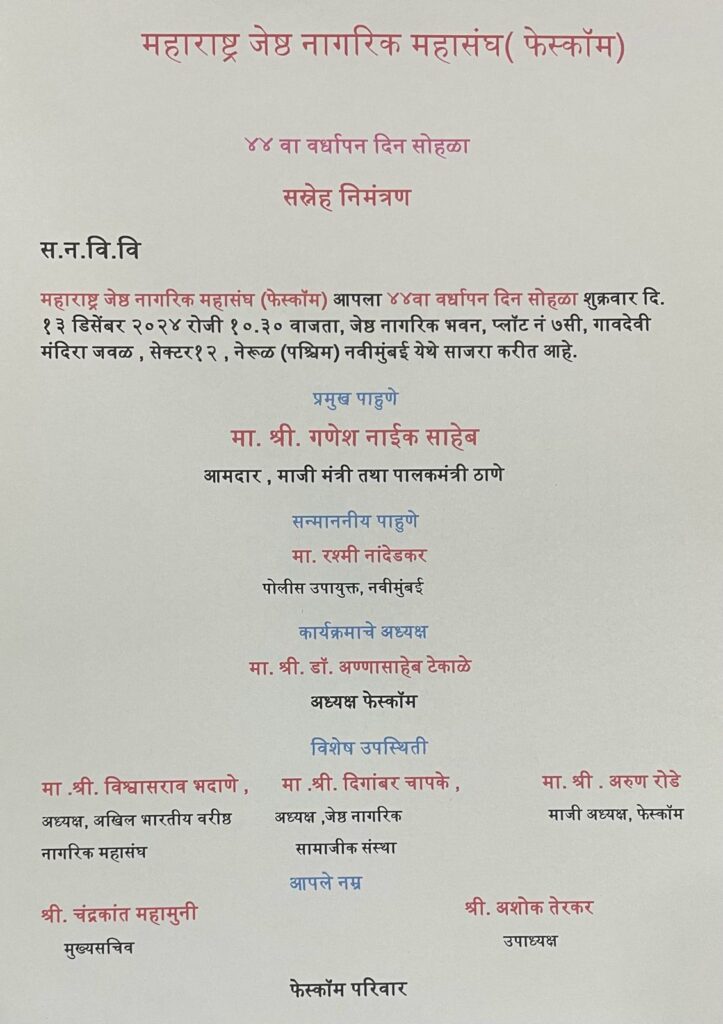 महाराष्ट्र जेष्ठ नागरिक महासंघ( फेस्कॉम)
४४ वा वर्धापन दिन सोहळा
सस्नेह निमंत्रण
स.न.वि.वि
महाराष्ट्र जेष्ठ नागरिक महासंघ (फेस्कॉम) आपला ४४वा वर्धापन दिन सोहळा शुक्रवार दि.
१३ डिसेंबर २०२४ रोजी १०.३० वाजता, जेष्ठ नागरिक भवन, प्लॉट नं ७सी, गावदेवी
मंदिरा जवळ , सेक्टर१२ , नेरूळ (पश्चिम) नवीमुंबई येथे साजरा करीत आहे.
प्रमुख पाहुणे
मा. श्री. गणेश नाईक साहेब
आमदार , माजी मंत्री तथा पालकमंत्री ठाणे
सन्माननीय पाहुणे
मा. रश्मी नांदेडकर
पोलीस उपायुक्त, नवीमुंबई
कार्यक्रमाचे अध्यक्ष
मा. श्री. डॉ. अण्णासाहेब टेकाळे
अध्यक्ष फेस्कॉम
विशेष उपस्थिती
मा .श्री. विश्वासराव भदाणे , मा .श्री. दिगांबर चापके , मा. श्री . अरुण रोडे
अध्यक्ष, अखिल भारतीय वरीष्ठ अध्यक्ष ,जेष्ठ नागरिक माजी अध्यक्ष, फेस्कॉम
नागरिक महासंघ सामाजीक संस्था
आपले नम्र
श्री. चंद्रकांत महामुनी श्री. अशोक तेरकर
मुख्यसचिव उपाध्यक्ष
फेस्कॉम परिवार